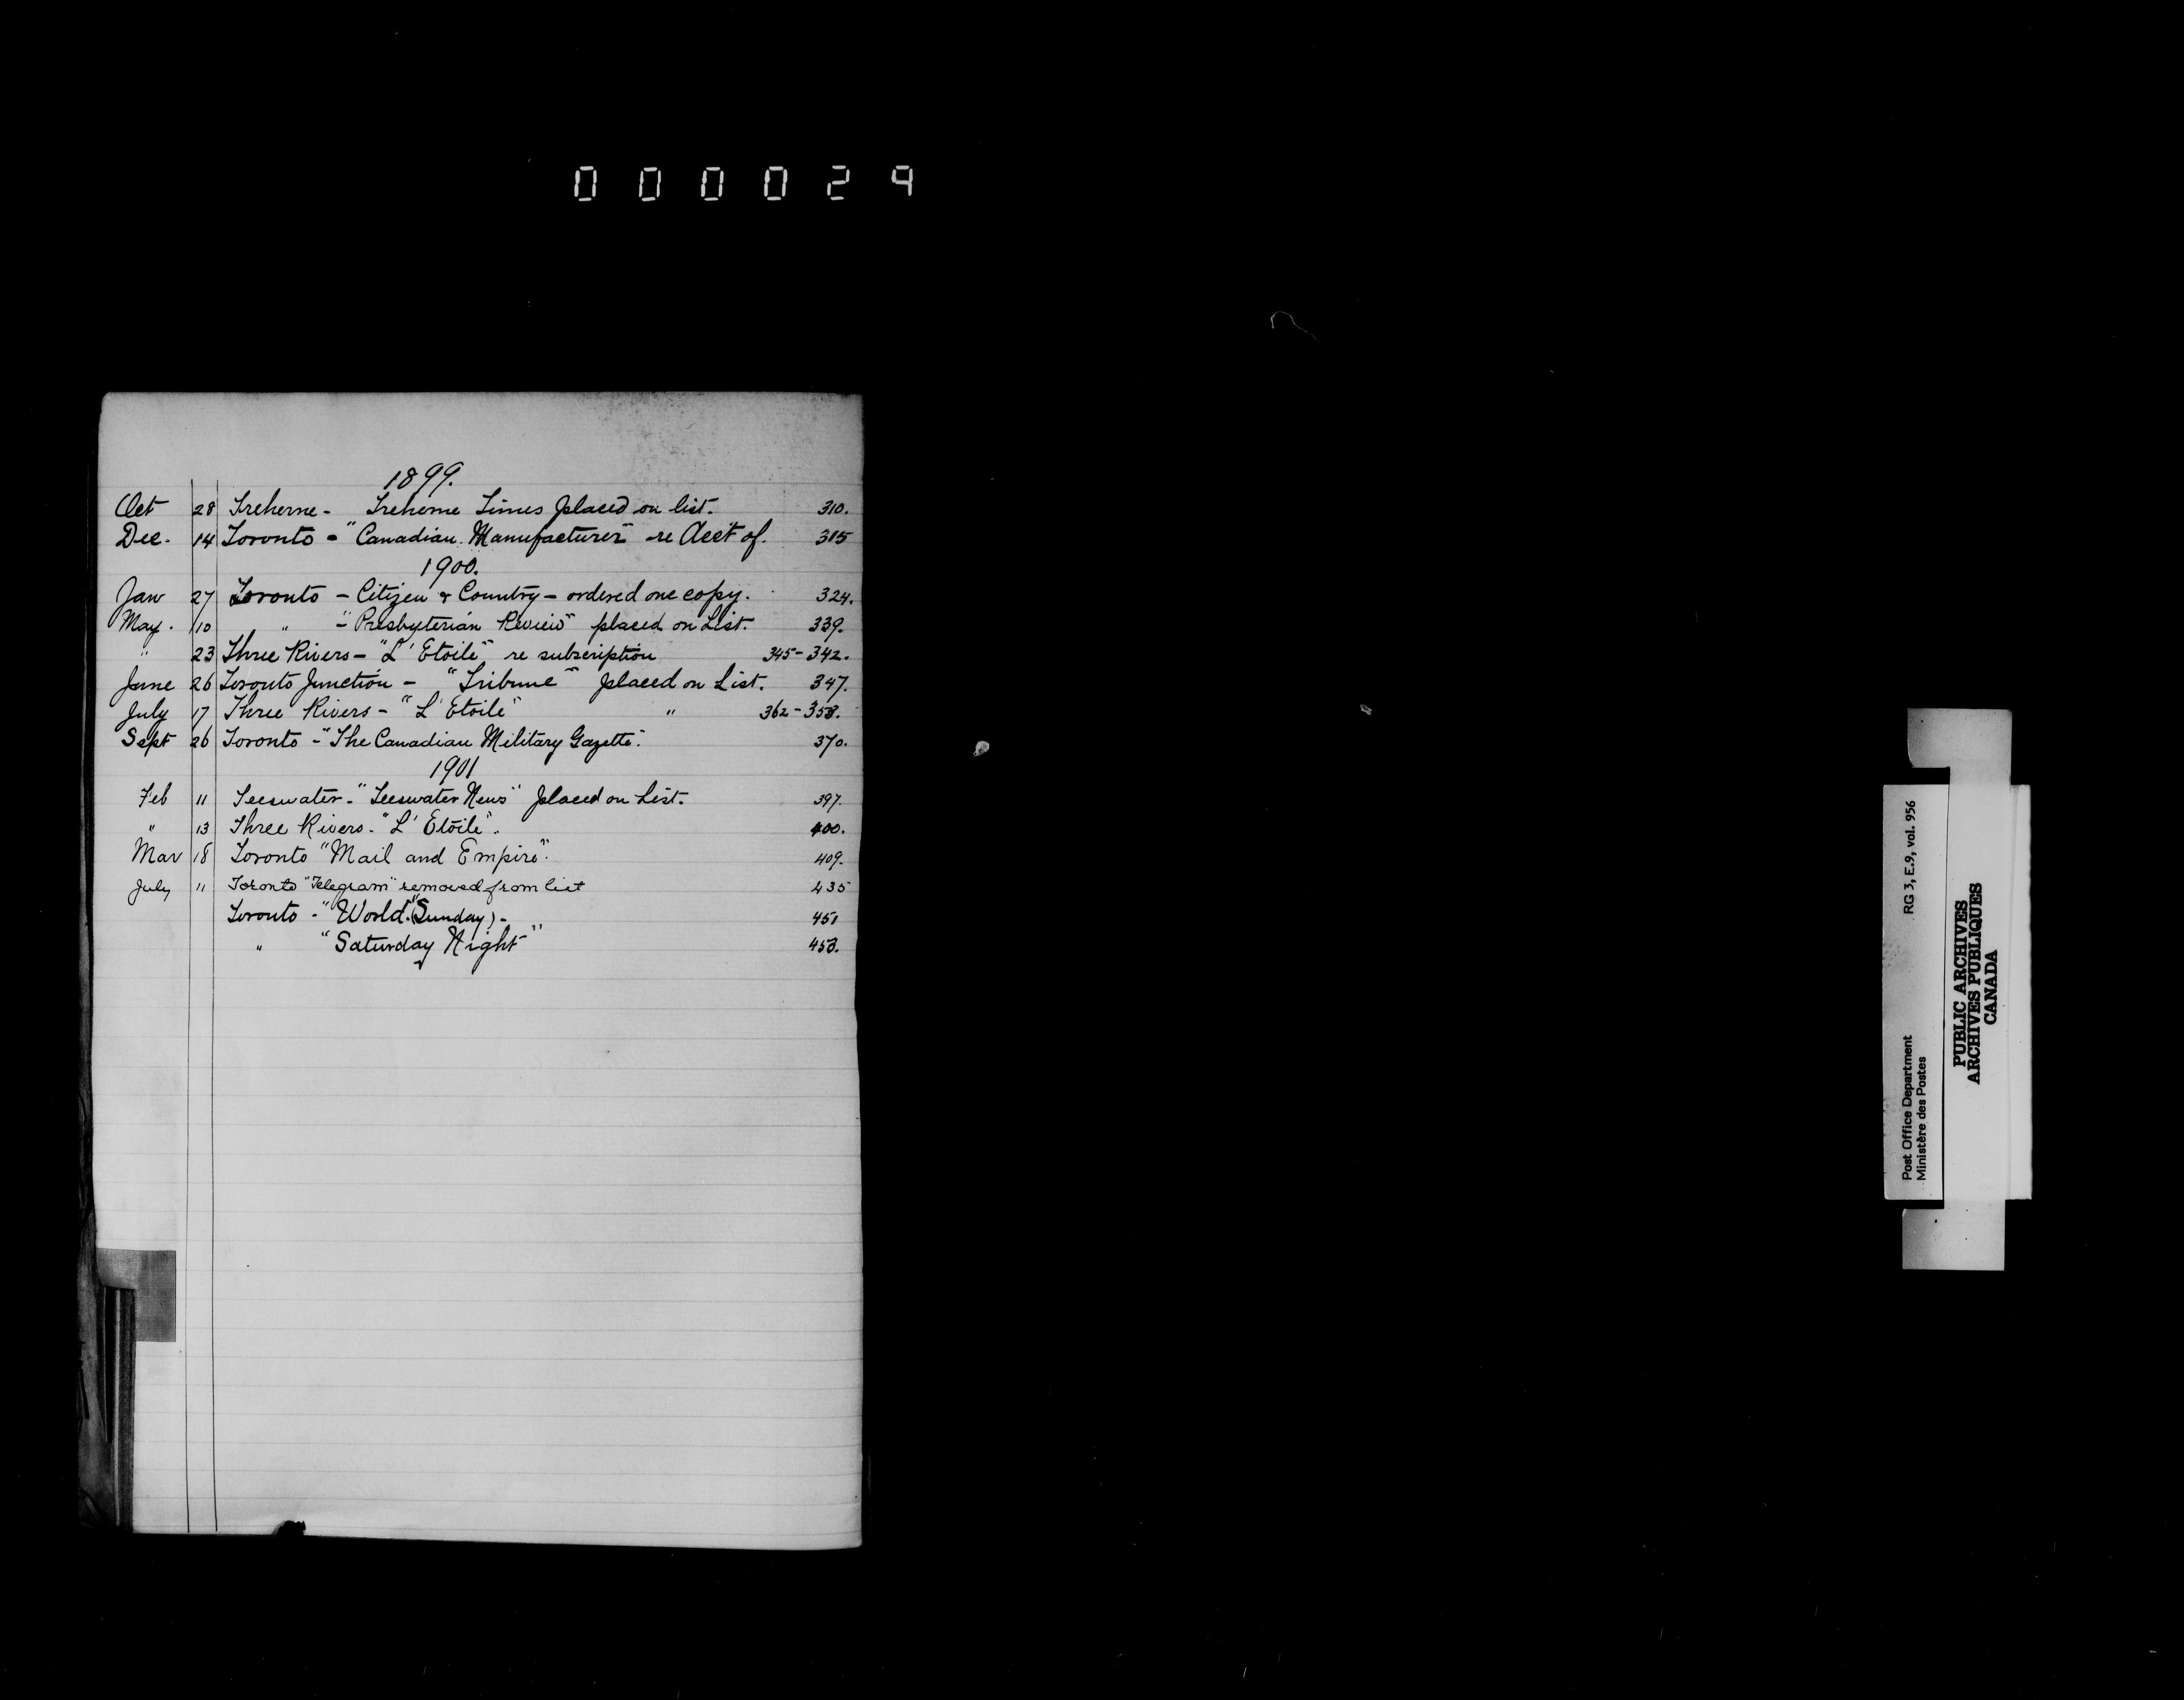 000029
1899.
Oct 28 Treherne - Treherne Times placed on list. 310.
Dec. 14 Toronto - "Canadian Manufacturer" re Acct of. 315
1900.
Jan 27 Toronto - Citizen & Country - ordered one copy. 324.
May. 10 " - "Presbyterian Review" placed on List. 339.
" 23 Three Rivers - "L'Etoile" re subscription 345-342.
June 26 Toronto Junction - "Tribune" placed on List. 347.
July 17 Three Rivers - "L'Etoile" " 362-358.
Sept 26 Toronto - "The Canadian Military Gazette". 370.
1901
Feb 11 Teeswater - "Teeswater News" placed on List. 397.
" 13 Three Rivers - "L'Etoile". 400.
Mar 18 Toronto "Mail and Empire". 409.
July 11 Toronto "Telegram" removed from list 435
Toronto - "World" (Sunday) - 451
" "Saturday Night" 453.
RG 3, E.9, vol. 956
Post Office Department
Ministère des Postes
PUBLIC ARCHIVES
ARCHIVES PUBLIQUES
CANADA